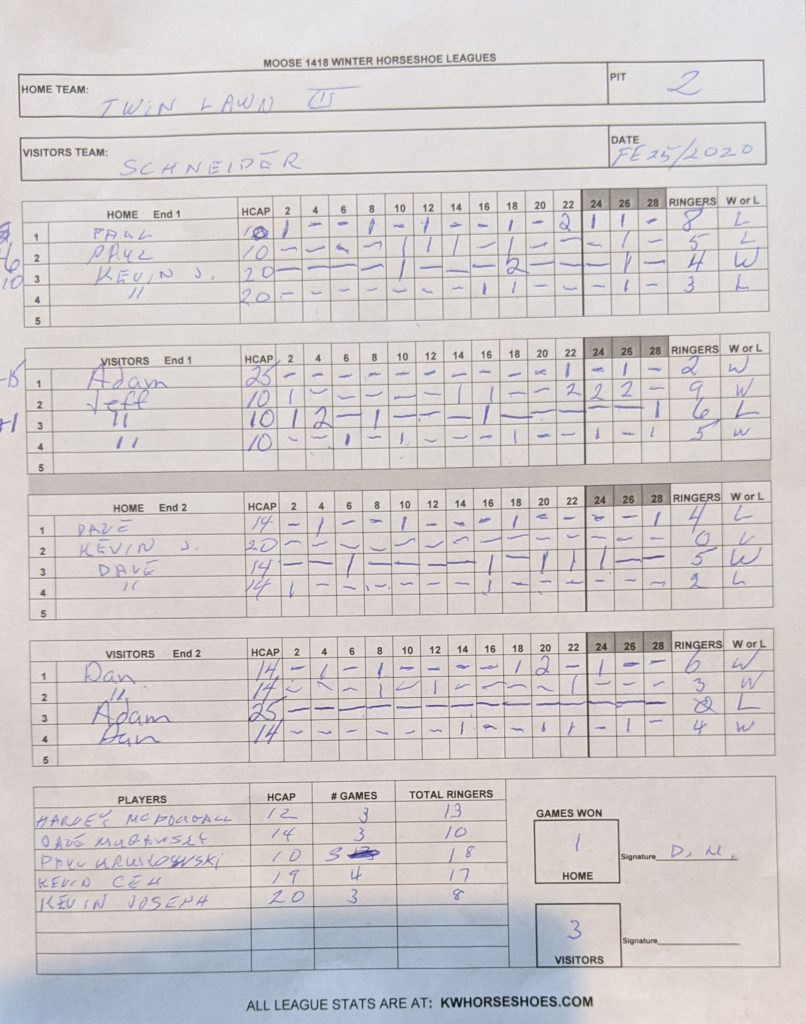 MOOSE 1418 WINTER HORSESHOE LEAGUES
HOME TEAM: TWIN LAWN III PIT 2
VISITORS TEAM: SCHNEIDER DATE FE 25/2020
HOME End 1 HCAP 2 4 6 8 10 12 14 16 18 20 22 24 26 28 RINGERS W or L
1 PAUL 10 1 - - 1 - 1 - - 1 - 2 1 1 - 8 L
2 PAUL 10 - - - - 1 1 1 - 1 - - - 1 - 5 L
3 KEVIN J. 20 - - - - 1 - - - 2 - - - 1 - 4 W
4 " 20 - - - - - - - 1 1 - - - 1 - 3 L
5
VISITORS End 1 HCAP 2 4 6 8 10 12 14 16 18 20 22 24 26 28 RINGERS W or L
1 Adam 25 - - - - - - - - - - 1 - 1 - 2 W
2 Jeff 10 1 - - - - - 1 1 - - 2 2 2 - 9 W
3 " 10 1 2 - 1 - - - 1 - - - - - 1 6 L
4 " 10 - - 1 - 1 - - - 1 - - 1 - 1 5 W
5
HOME End 2 HCAP 2 4 6 8 10 12 14 16 18 20 22 24 26 28 RINGERS W or L
1 DAVE 14 - 1 - - 1 - - - 1 - - - - 1 4 L
2 KEVIN J. 20 - - - - - - - - - - - - - - 0 L
3 DAVE 14 - - 1 - - - - 1 - 1 1 1 - - 5 W
4 " 14 1 - - - - - - 1 - - - - - - 2 L
5
VISITORS End 2 HCAP 2 4 6 8 10 12 14 16 18 20 22 24 26 28 RINGERS W or L
1 Dan 14 - 1 - 1 - - - - 1 2 - 1 - - 6 W
2 " 14 - - - 1 - 1 - - - - 1 - - - 3 W
3 Adam 25 - - - - - - - - - - - - - - 0 L
4 Dan 14 - - - - - - 1 - - 1 1 - 1 - 4 W
5
PLAYERS HCAP # GAMES TOTAL RINGERS
HARVEY McDOUGALL 12 3 13
DAVE 14 3 10
PAUL 10 3 18
KEVIN CEH 19 4 17
KEVIN JOSEPH 20 3 8
GAMES WON
1
HOME
Signature D. M.
3
VISITORS
Signature
ALL LEAGUE STATS ARE AT: KWHORSESHOES.COM